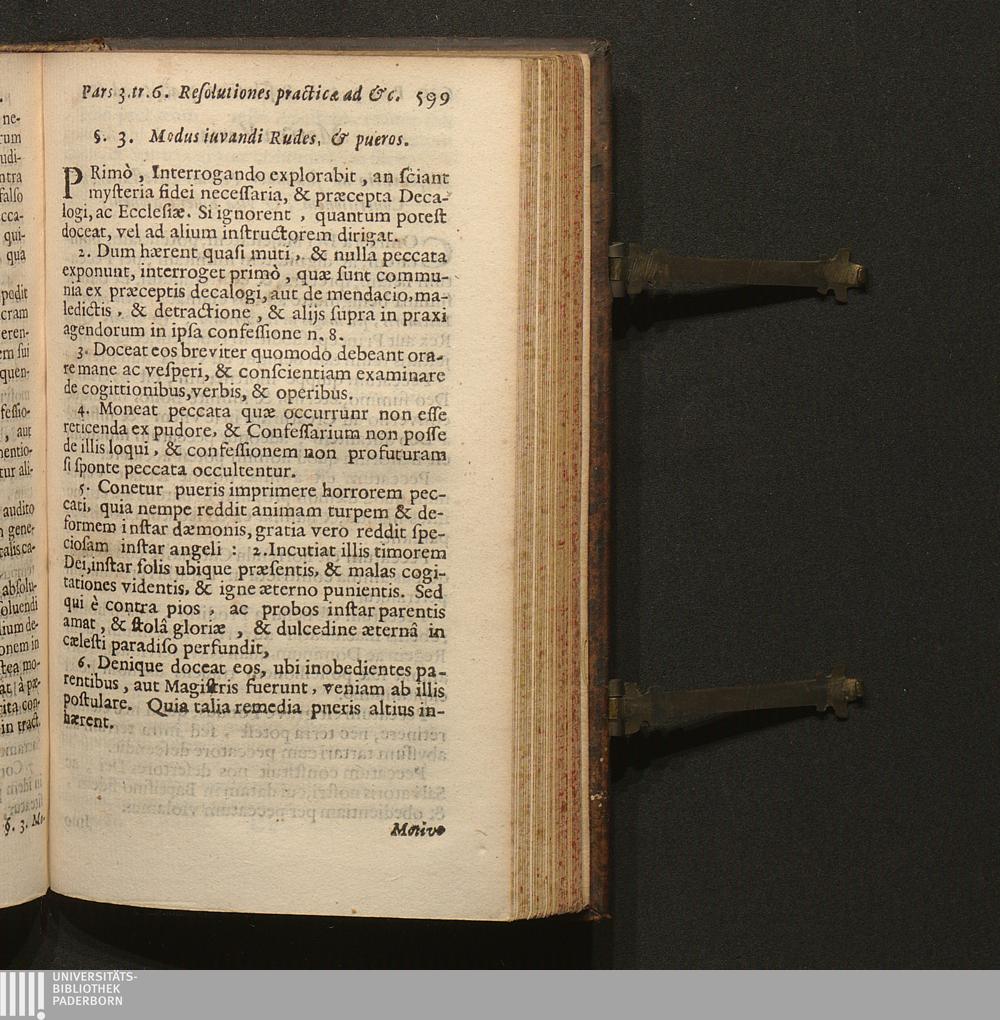 Pars 3.tr.6. Reſolutiones practicæ ad &c. 599
§. 3. Modus iuvandi Rudes, & pueros.
PRimò, Interrogando explorabit, an ſciant
myſteria fidei neceſſaria, & præcepta Deca-
logi, ac Eccleſiæ. Si ignorent, quantum poteſt
doceat, vel ad alium inſtructorem dirigat.
2. Dum hærent quaſi muti, & nulla peccata
exponunt, interroget primò, quæ ſunt commu-
nia ex præceptis decalogi, aut de mendacio, ma-
ledictis, & detractione, & alijs ſupra in praxi
agendorum in ipſa confeſſione n. 8.
3. Doceat eos breviter quomodo debeant ora-
re mane ac veſperi, & conſcientiam examinare
de cogittionibus, verbis, & operibus.
4. Moneat peccata quæ occurrunr non eſſe
reticenda ex pudore, & Confeſſarium non poſſe
de illis loqui, & confeſſionem non profuturam
ſi ſponte peccata occultentur.
5. Conetur pueris imprimere horrorem pec-
cati, quia nempe reddit animam turpem & de-
formem inſtar dæmonis, gratia vero reddit ſpe-
cioſam inſtar angeli : 2. Incutiat illis timorem
Dei, inſtar ſolis ubique præſentis, & malas cogi-
tationes videntis, & igne æterno punientis. Sed
qui è contra pios, ac probos inſtar parentis
amat, & ſtolâ gloriæ, & dulcedine æternâ in
cæleſti paradiſo perfundit,
6. Denique doceat eos, ubi inobedientes pa-
rentibus, aut Magiſtris fuerunt, veniam ab illis
poſtulare. Quia talia remedia pueris altius in-
hærent.
Motiva
ne-
rum
udi-
ntra
falſo
cca-
qui-
qua
pedit
cram
eren-
em ſui
quen-
feſſio-
, aut
nentio-
tur ali-
audito
n gene-
talis ca-
abſolu-
ſoluendi
lium de-
onem in
ſtea mo-
at à pæ-
rita con-
in tract.
§. 3. Mo-
UNIVERSITÄTS-
BIBLIOTHEK
PADERBORN